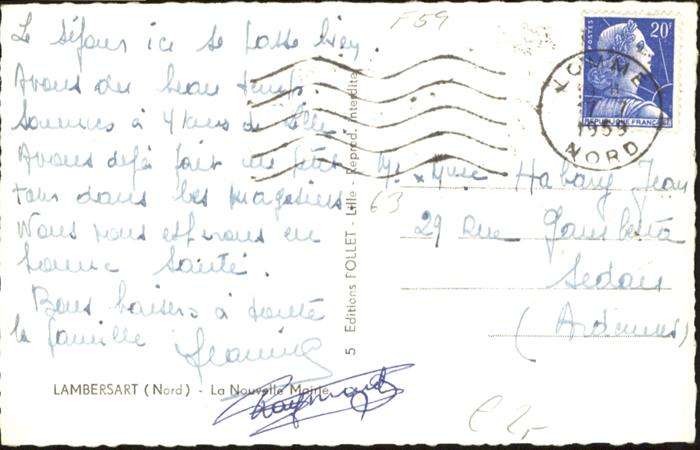 Le séjour ici se passe bien.
Avons du beau temps.
Sommes à 4 kms de Lille.
Avons déjà fait un petit
tour dans les magasins.
Nous vous espérons en
bonne santé.
Bons baisers à toute
la famille
Jeanine
Raymond
LAMBERSART (Nord) - La Nouvelle Mairie
5 Editions FOLLET - Lille - Reprod. Interdite
F 59
63
POSTES
20F
REPUBLIQUE FRANÇAISE
LOMME
1959
NORD
Mr x Mme Habary Jean
29 Rue Gambetta
Sedan
(Ardennes)